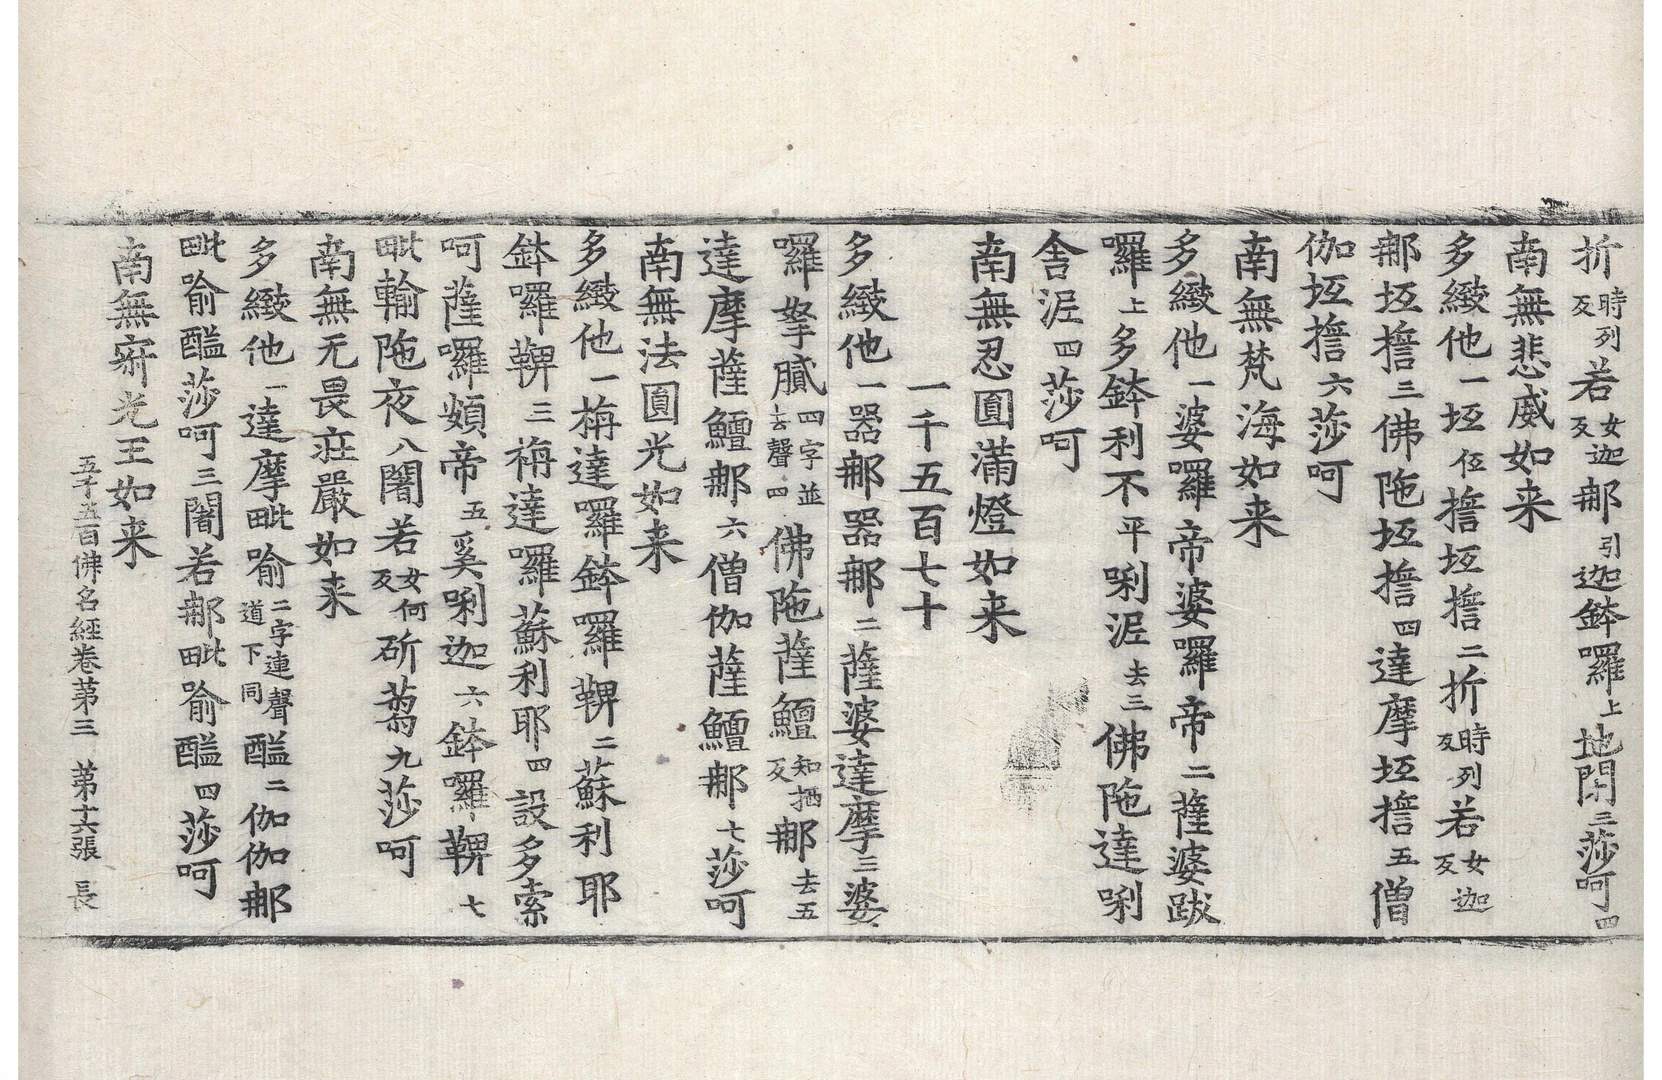 折時列反若女迦反那引迦鉢囉上地閇三莎呵四
南無悲威如来
多緻他一坘伍擔坘擔二折時列反若女迦反
那坘擔三佛陁坘擔四達摩坘擔五僧
伽坘擔六莎呵
南無梵海如来
多緻他一婆囉帝婆囉帝二薩婆跋
囉上多鉢利不平唎泥去三佛陁達唎
舎泥四莎呵
南無忍圓滿燈如来
一千五百七十
多緻他一器那器那二薩婆達摩三婆
囉拏膩四字並去聲四佛陁薩鱣知栖反那去五
達摩薩鱣那六僧伽薩鱣那七莎呵
南無法圓光如来
多緻他一栴達囉鉢囉鞞二蘇利耶
鉢囉鞞三栴達囉蘇利耶四設多索
呵薩囉頞帝五奚唎迦六鉢囉鞞七
毗輸陁夜八闍若女何反斫蒭九莎呵
南無无畏莊嚴如来
多緻他一達摩毗喻二字連聲道下同醯二伽伽那
毗喻醯莎呵三闍若那毗喻醯四莎呵
南無光王如来
五千五百佛名經卷苐三 苐十六張 長